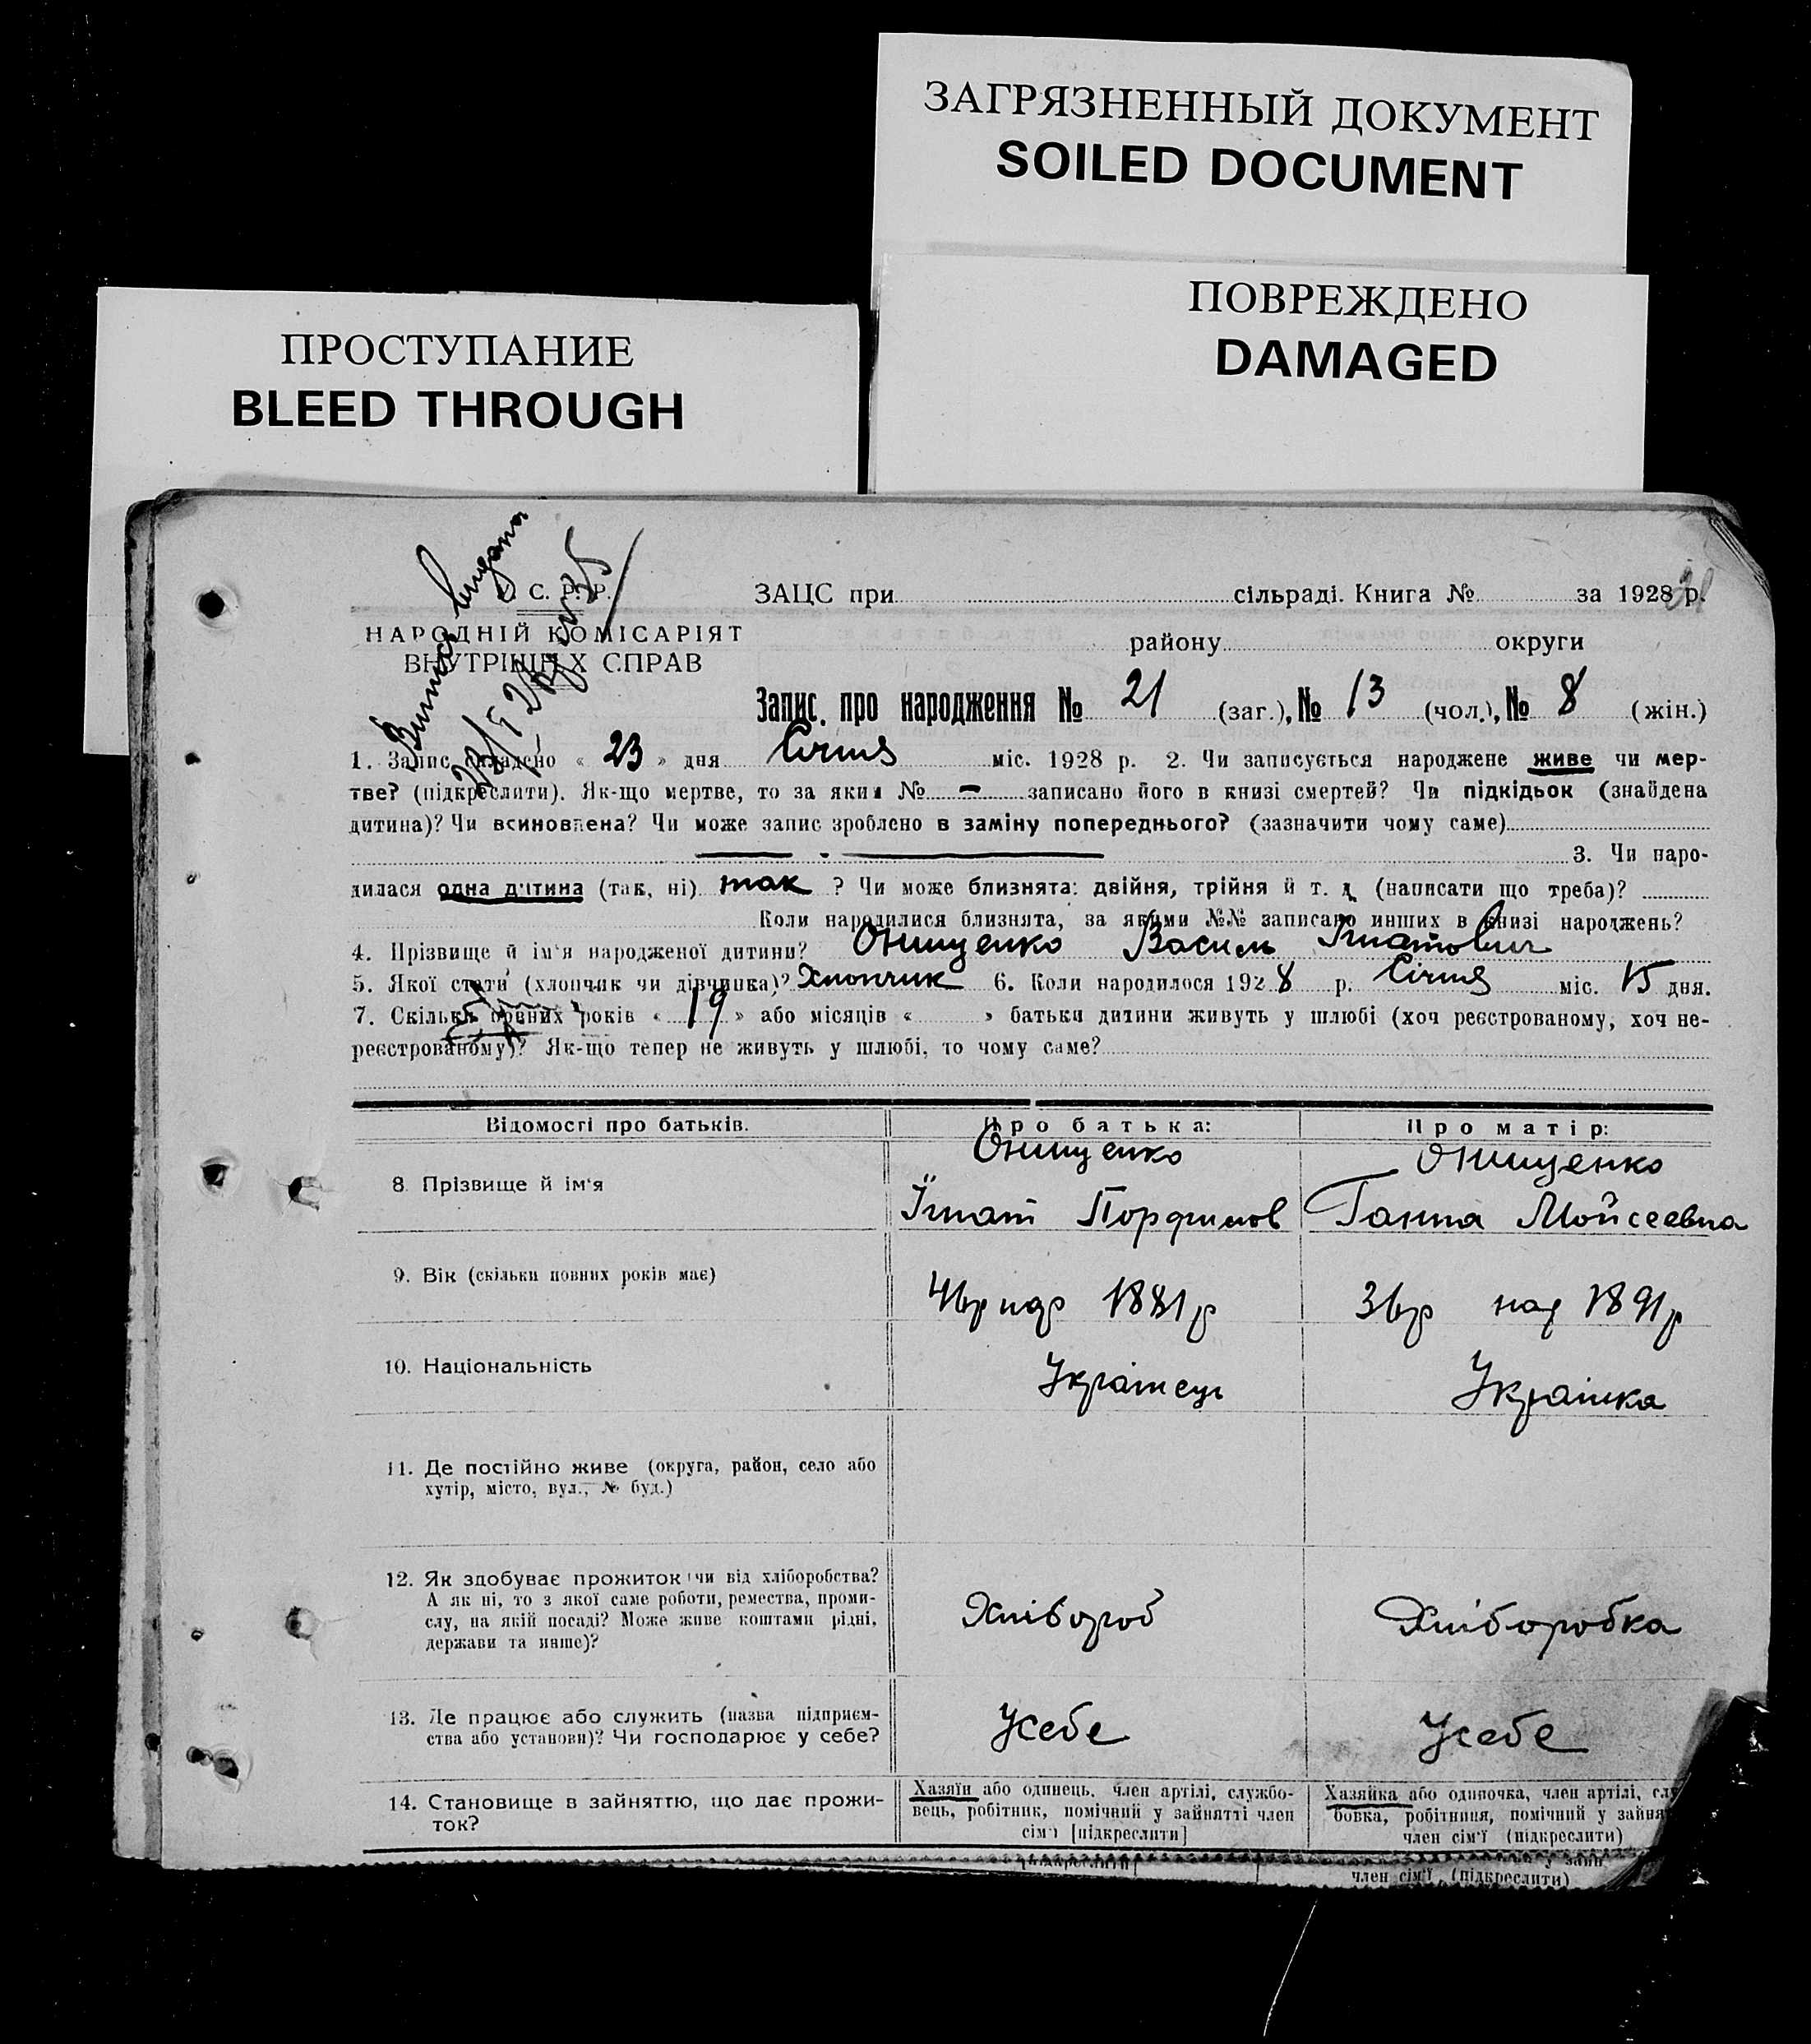 ЗАГРЯЗНЕННЫЙ ДОКУМЕНТ
SOILED DOCUMENT
ПОВРЕЖДЕНО
DAMAGED
ПРОСТУПАНИЕ
BLEED THROUGH
Виписъ видана
С. Р. Р.
НАРОДНІЙ КОМІСАРІЯТ
ВНУТРІШНІХ СПРАВ
ЗАЦС при сільраді. Книга № за 1928 р.
району округи
Запис про народження № 21 (заг.), № 13 (чол.), № 8 (жін.)
1. Запис складено « 23 » дня Січня міс. 1928 р. 2. Чи записується народжене живе чи мер-
тве? (підкреслити). Як-що мертве, то за яким № - записано його в книзі смертей? Чи підкідьок (знайдена
дитина)? Чи всиновлена? Чи може запис зроблено в заміну попереднього? (зазначити чому саме)
3. Чи наро-
дилася одна дитина (так, ні) так ? Чи може близнята: двійня, трійня й т. д. (написати що треба)?
Коли народилися близнята, за якими №№ записано инших в книзі народжень?
4. Прізвище й ім'я народженої дитини? Онищенко Василь Ігнатович
5. Якої стати (хлопчик чи дівчинка)? Хлопчик 6. Коли народилося 1928 р. Січня міс. 15 дня.
7. Скільки повних років « 19 » або місяців « » батьки дитини живуть у шлюбі (хоч реєстрованому, хоч не-
реєстрованому)? Як-що тепер не живуть у шлюбі, то чому саме?
Відомості про батьків. Про батька: Про матір:
8. Прізвище й ім'я
Онищенко
Ігнат
Онищенко
Ганна Мойсеевна
9. Вік (скільки повних років має)
1881 р
36 р 1891 р
10. Національність
Українець
Українка
11. Де постійно живе (округа, район, село або
хутір, місто, вул., № буд.)
12. Як здобуває прожиток (чи від хліборобства?
А як ні, то з якої саме роботи, ремества, проми-
слу, на якій посаді? Може живе коштами рідні,
держави та инше)?
Хлібороб
Хліборобка
13. Де працює або служить (назва підприєм-
ства або установи)? Чи господарює у себе?
У себе
У себе
14. Становище в зайняттю, що дає прожи-
ток?
Хазяїн або одинець, член артілі, службо-
вець, робітник, помічний у зайнятті член
сім'ї [підкреслити]
Хазяйка або одиночка, член артілі,
бовка, робітниця, помічний у
член сім'ї (підкреслити)
член сім'ї (підкреслити)